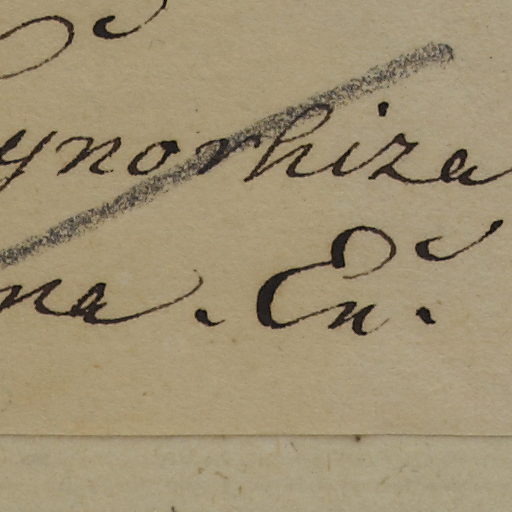 ynorhiza
na. En.